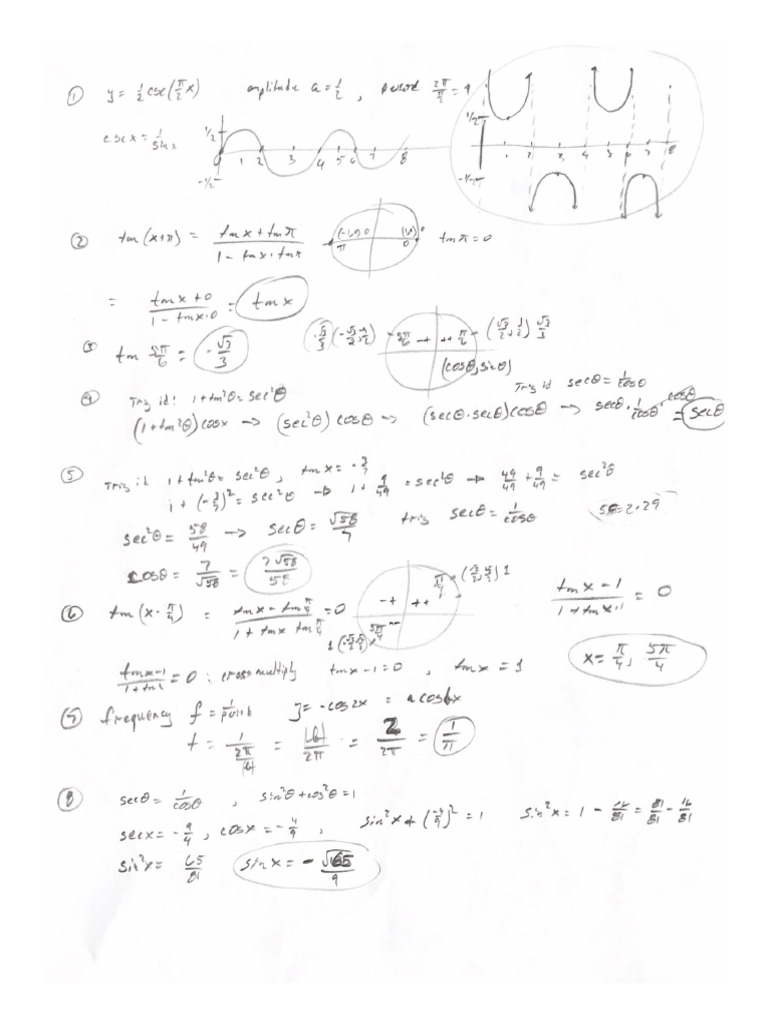 ① y = 1/2 csc(π/2 x) amplitude a = 1/2, period 2π/(π/2) = 4
csc x = 1/sin x
1/2 -1/2 0 1 2 3 4 5 6 7 8
1/2 -1/2 1 2 3 4 5 6 7 8
② tan(x+π) = (tan x + tan π)/(1 - tan x · tan π) (-1,0) 0 π (1,0) 0 0 tan π = 0
= (tan x + 0)/(1 - tan x · 0) = tan x
③ tan 5π/6 = -√3/3 -√3/3 (-√3/2, 1/2) 5π/6 -+ ++ π/6 (√3/2, 1/2) √3/3
(cosθ, sinθ)
④ Trig id: 1+tan²θ = sec²θ Trig id secθ = 1/cosθ
(1+tan²θ)cosx → (sec²θ)cosθ → (secθ·secθ)cosθ → secθ · 1/cosθ · cosθ = secθ
⑤ Trig id 1+tan²θ = sec²θ, tan x = -3/7
1 + (-3/7)² = sec²θ → 1 + 9/49 = sec²θ → 49/49 + 9/49 = sec²θ
sec²θ = 58/49 → secθ = √58/7 trig secθ = 1/cosθ 58=2·29
cosθ = 7/√58 = 7√58/58
⑥ tan(x - π/4) = (tan x - tan π/4)/(1 + tan x tan π/4) = 0 -+ ++ π/4 (√2/2, √2/2) 1 (tan x - 1)/(1 + tan x · 1) = 0
1 (-√2/2, -√2/2) 5π/4 --
(tanx-1)/(1+tan) = 0 ; cross multiply tan x - 1 = 0, tan x = 1 x = π/4, 5π/4
⑦ frequency f = 1/period y = -cos2x = a cosbx
f = 1/(2π/|b|) = |b|/2π = 2/2π = 1/π
⑧ secθ = 1/cosθ, sin²θ + cos²θ = 1
secx = -9/4, cosx = -4/9, sin²x + (-4/9)² = 1 sin²x = 1 - 16/81 = 81/81 - 16/81
sin²x = 65/81 sin x = -√65/9